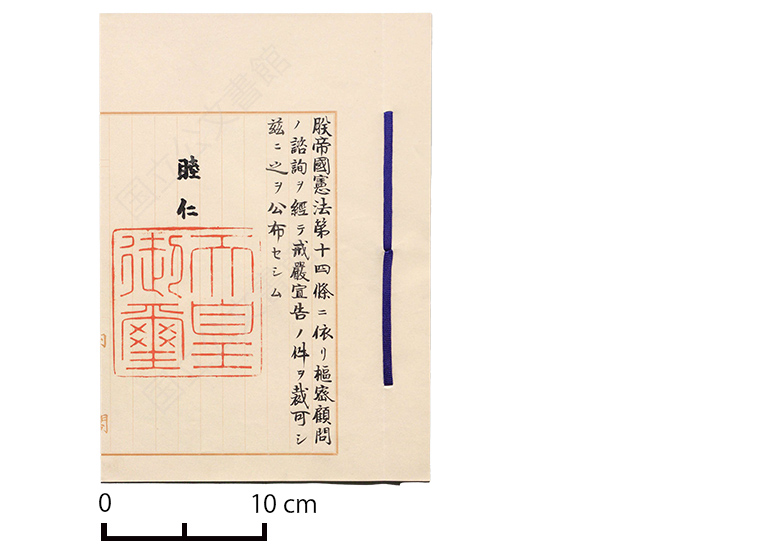 朕帝國憲法第十四條ニ依リ樞密顧問
ノ諮詢ヲ經テ戒嚴宣告ノ件ヲ裁可シ
茲ニ之ヲ公布セシム
睦仁
天皇
御璽
内
閣
国立公文書館
0 10 cm